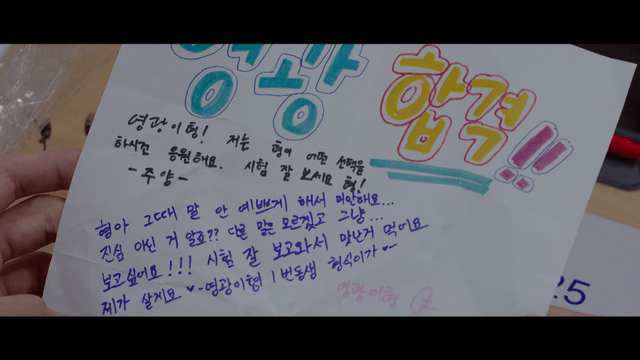 영광 합격!!
영광이형! 저는 형이 어떤 선택을
하시건 응원해요. 시험 잘 보세요 형!
- 주양 -
형아 그때 말 안 예쁘게 해서 미안해요...
진심 아닌 거 알죠?? 다른 말은 모르겠고 그냥...
보고싶어요!!! 시험 잘 보고와서 맛난거 먹어요
제가 살게요 ♥ -영광이형 1번동생 형식이가♥-
영광이형
25